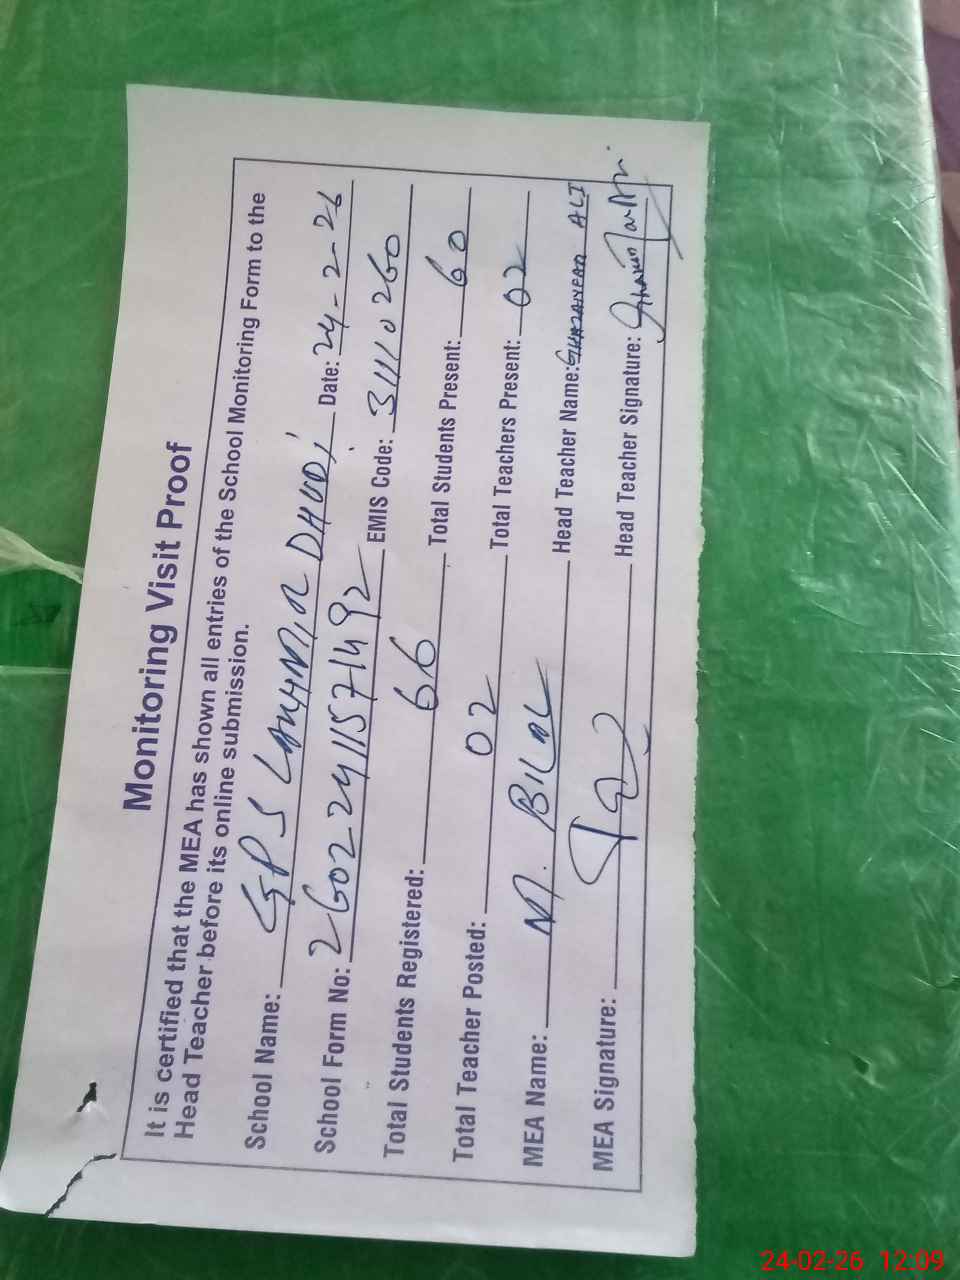 Monitoring Visit Proof
It is certified that the MEA has shown all entries of the School Monitoring Form to the
Head Teacher before its online submission.
School Name: GPS DHUDi Date: 24-2-26
School Form No: 26022411571492 EMIS Code: 31110260
Total Students Registered: 66 Total Students Present: 60
Total Teacher Posted: 02 Total Teachers Present: 02
MEA Name: M. BILAL Head Teacher Name: ALI
MEA Signature: Head Teacher Signature:
24-02-26 12:09